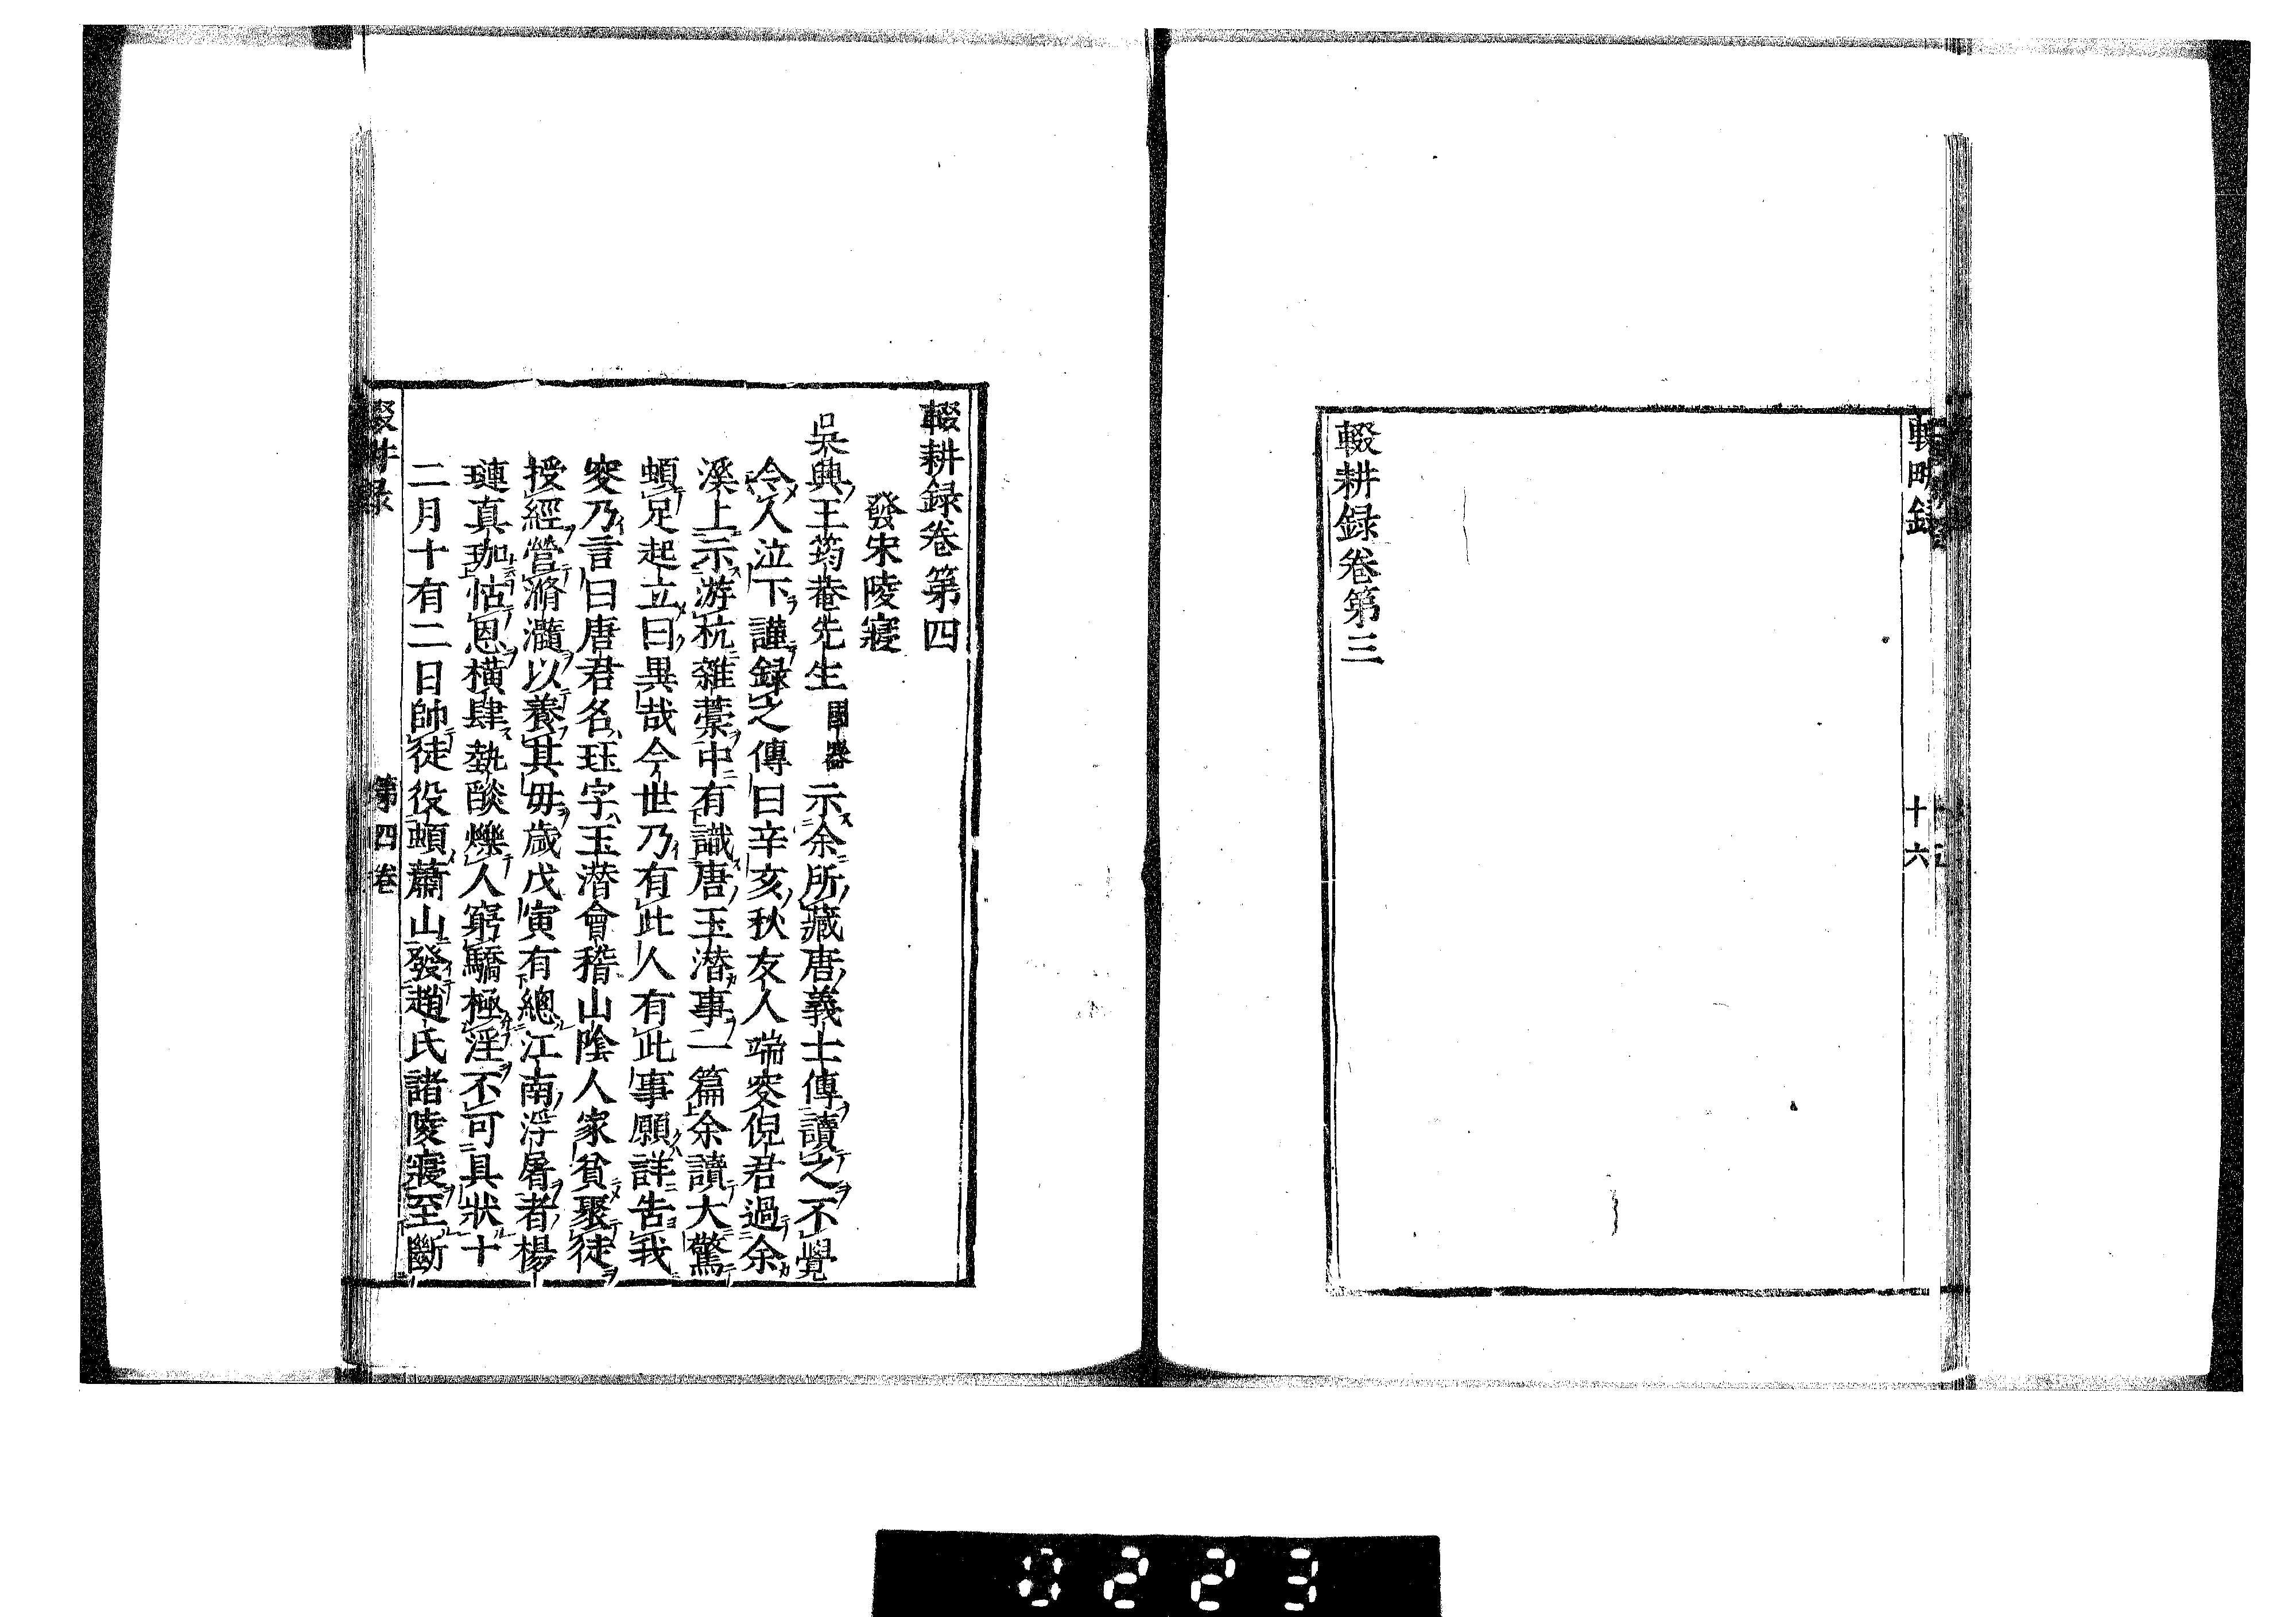 輟耕録
十六
輟耕録卷第三
輟耕録卷第四
發宋陵寢
吳興王筠菴先生國器示余所藏唐義士傳讀之不覺
令人泣下謹録之傳曰辛亥秋友人端夌倪君過余
溪上示游杭雜藁中有識唐玉潜事一篇余讀大驚
頓足起立曰異哉今世乃有此人有此事願詳告我
夌乃言曰唐君名珏字玉潜會稽山陰人家貧聚徒
授經營滫瀡以養其毋歳戊寅有總江南浮屠者楊
璉真珈怙恩横肆埶酸爍人窮驕極淫不可具狀十
二月十有二日帥徒役頓蕭山發趙氏諸陵寢至斷
輟耕録
第四卷
0223